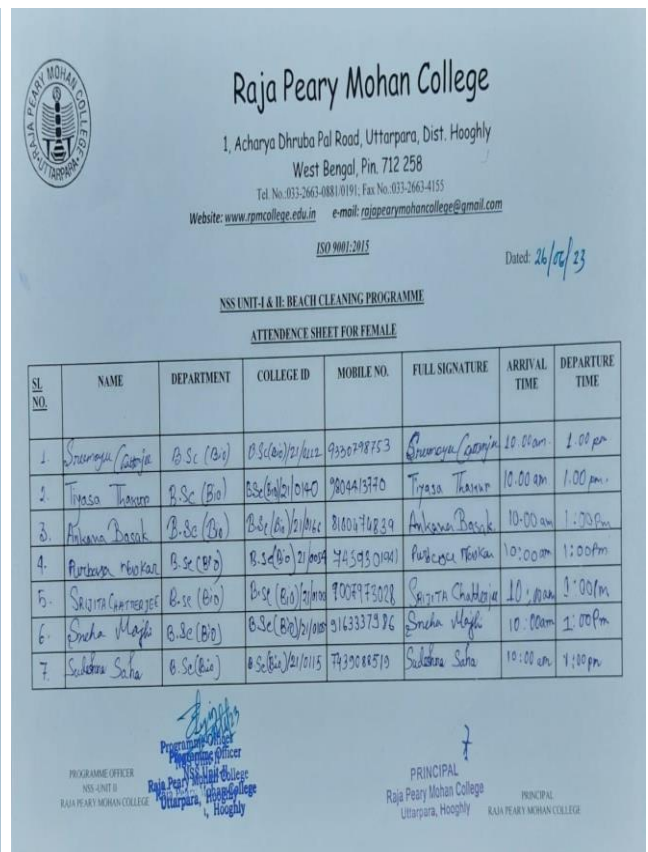 RAJA PEARY MOHAN COLLEGE
UTTARPARA
Raja Peary Mohan College
1, Acharya Dhruba Pal Road, Uttarpara, Dist. Hooghly
West Bengal, Pin. 712 258
Tel. No.:033-2663-0881/0191; Fax No.:033-2663-4155
Website: www.rpmcollege.edu.in e-mail: rajapearymohancollege@gmail.com
ISO 9001:2015
Dated: 26/06/23
NSS UNIT-I & II: BEACH CLEANING PROGRAMME
ATTENDENCE SHEET FOR FEMALE
SL NO. NAME DEPARTMENT COLLEGE ID MOBILE NO. FULL SIGNATURE ARRIVAL TIME DEPARTURE TIME
1. B.Sc (Bio) B.Sc(Bio)/21/0112 9330798753 10.00am. 1.00 pm
2. Tiyasa Thakur B.Sc (Bio) BSc(Bio)/21/0140 9804413770 Tiyasa Thakur 10.00 am 1.00 pm.
3. Ankana Basak B.Sc (Bio) B.Sc(Bio)/21/0166 8100474839 Ankana Basak 10.00 am 1:00Pm
4. B.Sc (Bio) B.Sc(Bio)/21/0054 10:00am 1:00Pm
5. SRIJITA CHATTERJEE B.Sc (Bio) 9007973028 SRIJITA Chatterjee 10:00am 1:00Pm
6. Sneha Majhi B.Sc (Bio) 9163337986 Sneha Majhi 10:00am 1:00Pm
7. Sudeshna Saha B.Sc(Bio) B.Sc(Bio)/21/0115 7439088519 Sudeshna Saha 10:00 am 1:00pm
Programme Officer
Programme Officer
NSS Unit-II
Raja Peary Mohan College
Uttarpara, Hooghly
PROGRAMME OFFICER
NSS -UNIT II
RAJA PEARY MOHAN COLLEGE
PRINCIPAL
Raja Peary Mohan College
Uttarpara, Hooghly
PRINCIPAL
RAJA PEARY MOHAN COLLEGE